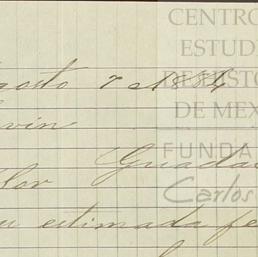 CENTRO
ESTUDI
DE HISTO
DE MEX
FUNDA
Carlos
gosto 7 de 1884
Guada
lor
estimada fe